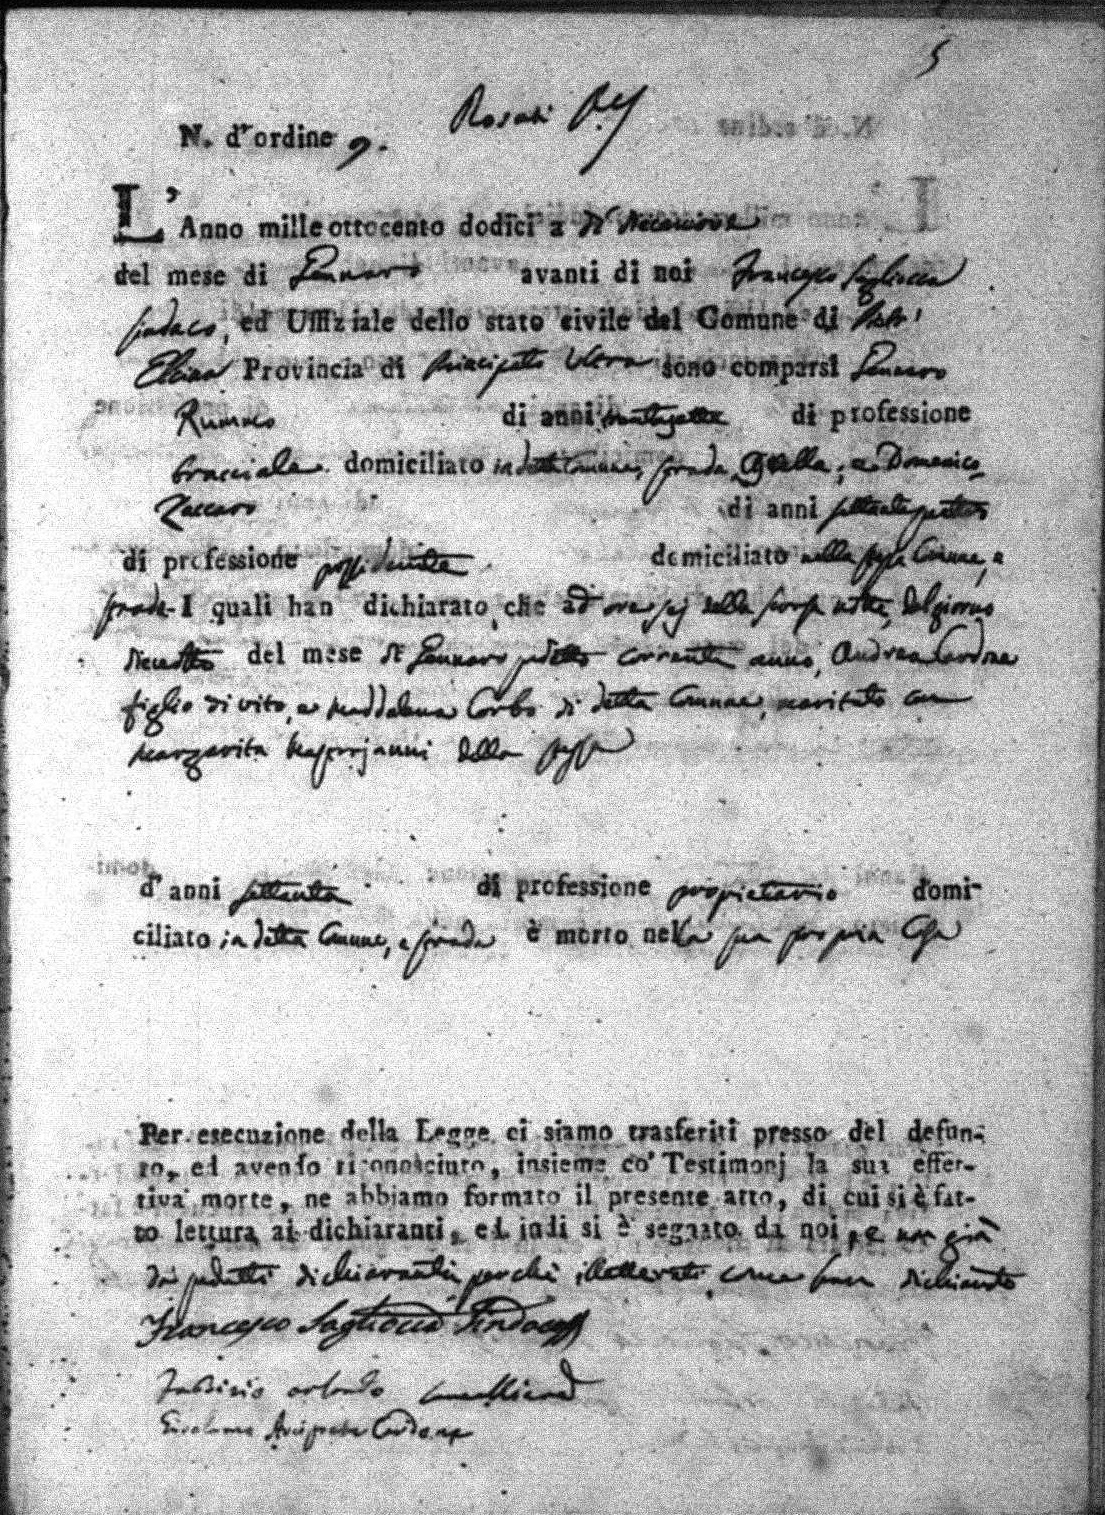 5
Rosati
N. d'ordine 9.
L'Anno mille ottocento dodici a dì diecinove
del mese di Gennaro avanti di noi Francesco Sagliocca
Sindaco, ed Uffiziale dello stato civile del Comune di
Provincia di Principato Ultra sono comparsi Gennaro
Rumaco di anni di professione
bracciale domiciliato in detta Comune, strada, e Domenico
Zaccaro di anni
di professione possidente domiciliato nella stessa Comune, e
strada - I quali han dichiarato, che ad ore sej della scorsa notte, del giorno
dieciotto del mese di Gennaro corrente anno, Andrea Cardone
figlio di Vito, e Maddalena Corbo di detta Comune, maritato con
Margarita della stessa
d' anni settanta di professione proprietario domi-
ciliato in detta Comune, e strada è morto nella sua propria Casa
Per esecuzione della Legge ci siamo trasferiti presso del defun-
to, ed avendo riconosciuto, insieme co' Testimonj la sua effet-
tiva morte, ne abbiamo formato il presente atto, di cui si è fat-
to lettura ai dichiaranti, ed indi si è segnato da noi, e non già
da' sudetti dichiaranti perchè illetterati, come han dichiarato
Francesco Sagliocca Sindaco
Fabrizio Orlando
Girolamo Arciprete Cardone